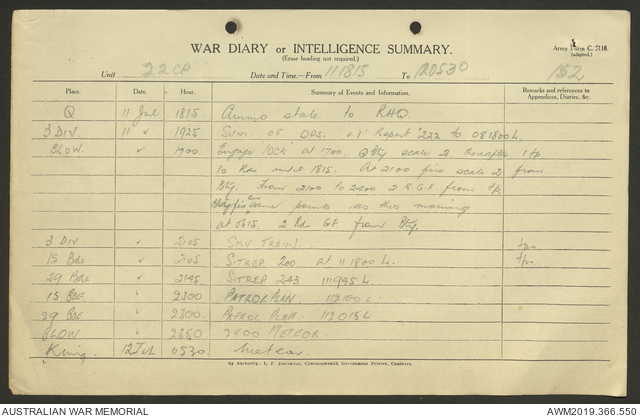 WAR DIARY or INTELLIGENCE SUMMARY.
(Erase heading not required.)
Army Form C. 2118.
(adapted.)
Unit 22 CP Date and Time—From 111815 To 120530 152
Place. Date. Hour. Summary of Events and Information. Remarks and references to Appendices, Diaries, &c.
Q 11 Jul 1815 Ammo state to RHQ.
3 DIV. 11 ✓ 1925 Sum. of OPS. + I Report 222 to 081800L.
BLOW. ✓ 1700 Engage 'OCK' at 1700. Q Bty scale 2 thereafter 1 tp.
10 Rds until 1815. At 2100 fire scale 2 from
Bty. From 2100 to 2400 2 R.G.F from tp.
Bty fire on same points as this morning
at 0615. 2 Rds GF from Bty.
3 Div ✓ 2105 SKY TRAIN tps.
15 Bde ✓ 2105 SITREP 200 at 111800 L. tps.
29 Bde ✓ 2145 SITREP 243 111945 L.
15 BDE ✓ 2300 PATROL PLAN 112100 L.
29 BDE ✓ 2300 PATROL PLAN. 112015 L
BLOW ✓ 2350 2400 METEOR.
King. 12 Jul 0530 Meteor.
1.
By Authority: L. F. Johnston, Commonwealth Government Printer, Canberra.
AUSTRALIAN WAR MEMORIAL
AWM2019.366.550